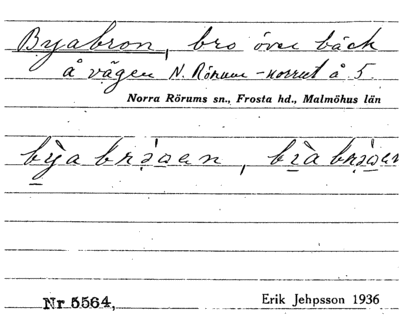 Byabron, bro över bäck
å vägen N. Rörum – norrut å 5.
Norra Rörums sn., Frosta hd., Malmöhus län
Nr 5564,
Erik Jehpsson 1936